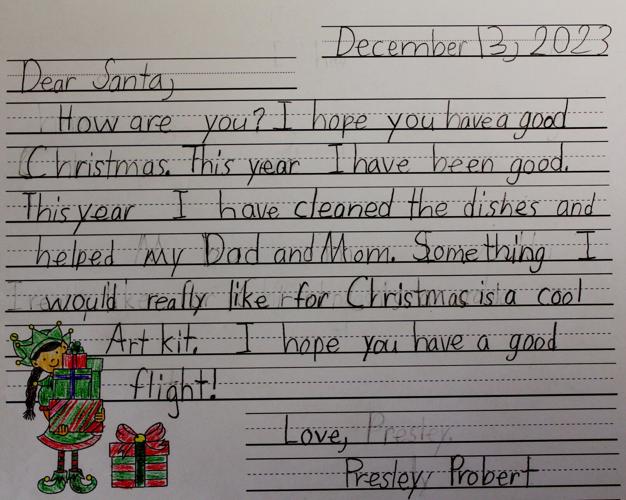 December 13, 2023
Dear Santa,
How are you? I hope you have a good
Christmas. This year I have been good.
This year I have cleaned the dishes and
helped my Dad and Mom. Something I
would really like for Christmas is a cool
Art kit. I hope you have a good
flight!
Love, Presley.
Presley Probert